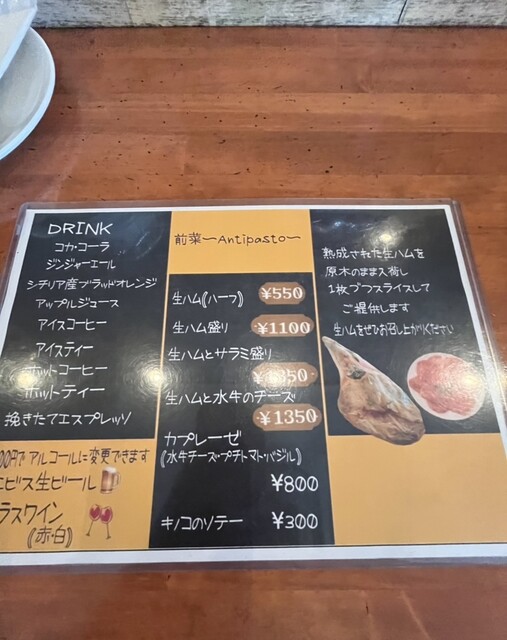 DRINK
コカ・コーラ
ジンジャーエール
シチリア産ブラッドオレンジ
アップルジュース
アイスコーヒー
アイスティー
ホットコーヒー
ホットティー
挽きたてエスプレッソ
00円でアルコールに変更できます
ビス生ビール
ラスワイン
(赤・白)
前菜〜Antipasto〜
生ハム(ハーフ) ¥550
生ハム盛り ¥1100
生ハムとサラミ盛り
生ハムと水牛のチーズ
¥1350
カプレーゼ
(水牛チーズ・プチトマト・バジル)
¥800
キノコのソテー ¥300
熟成された生ハムを
原木のまま入荷し
1枚づつスライスして
ご提供します
生ハムをぜひお召し上がりください